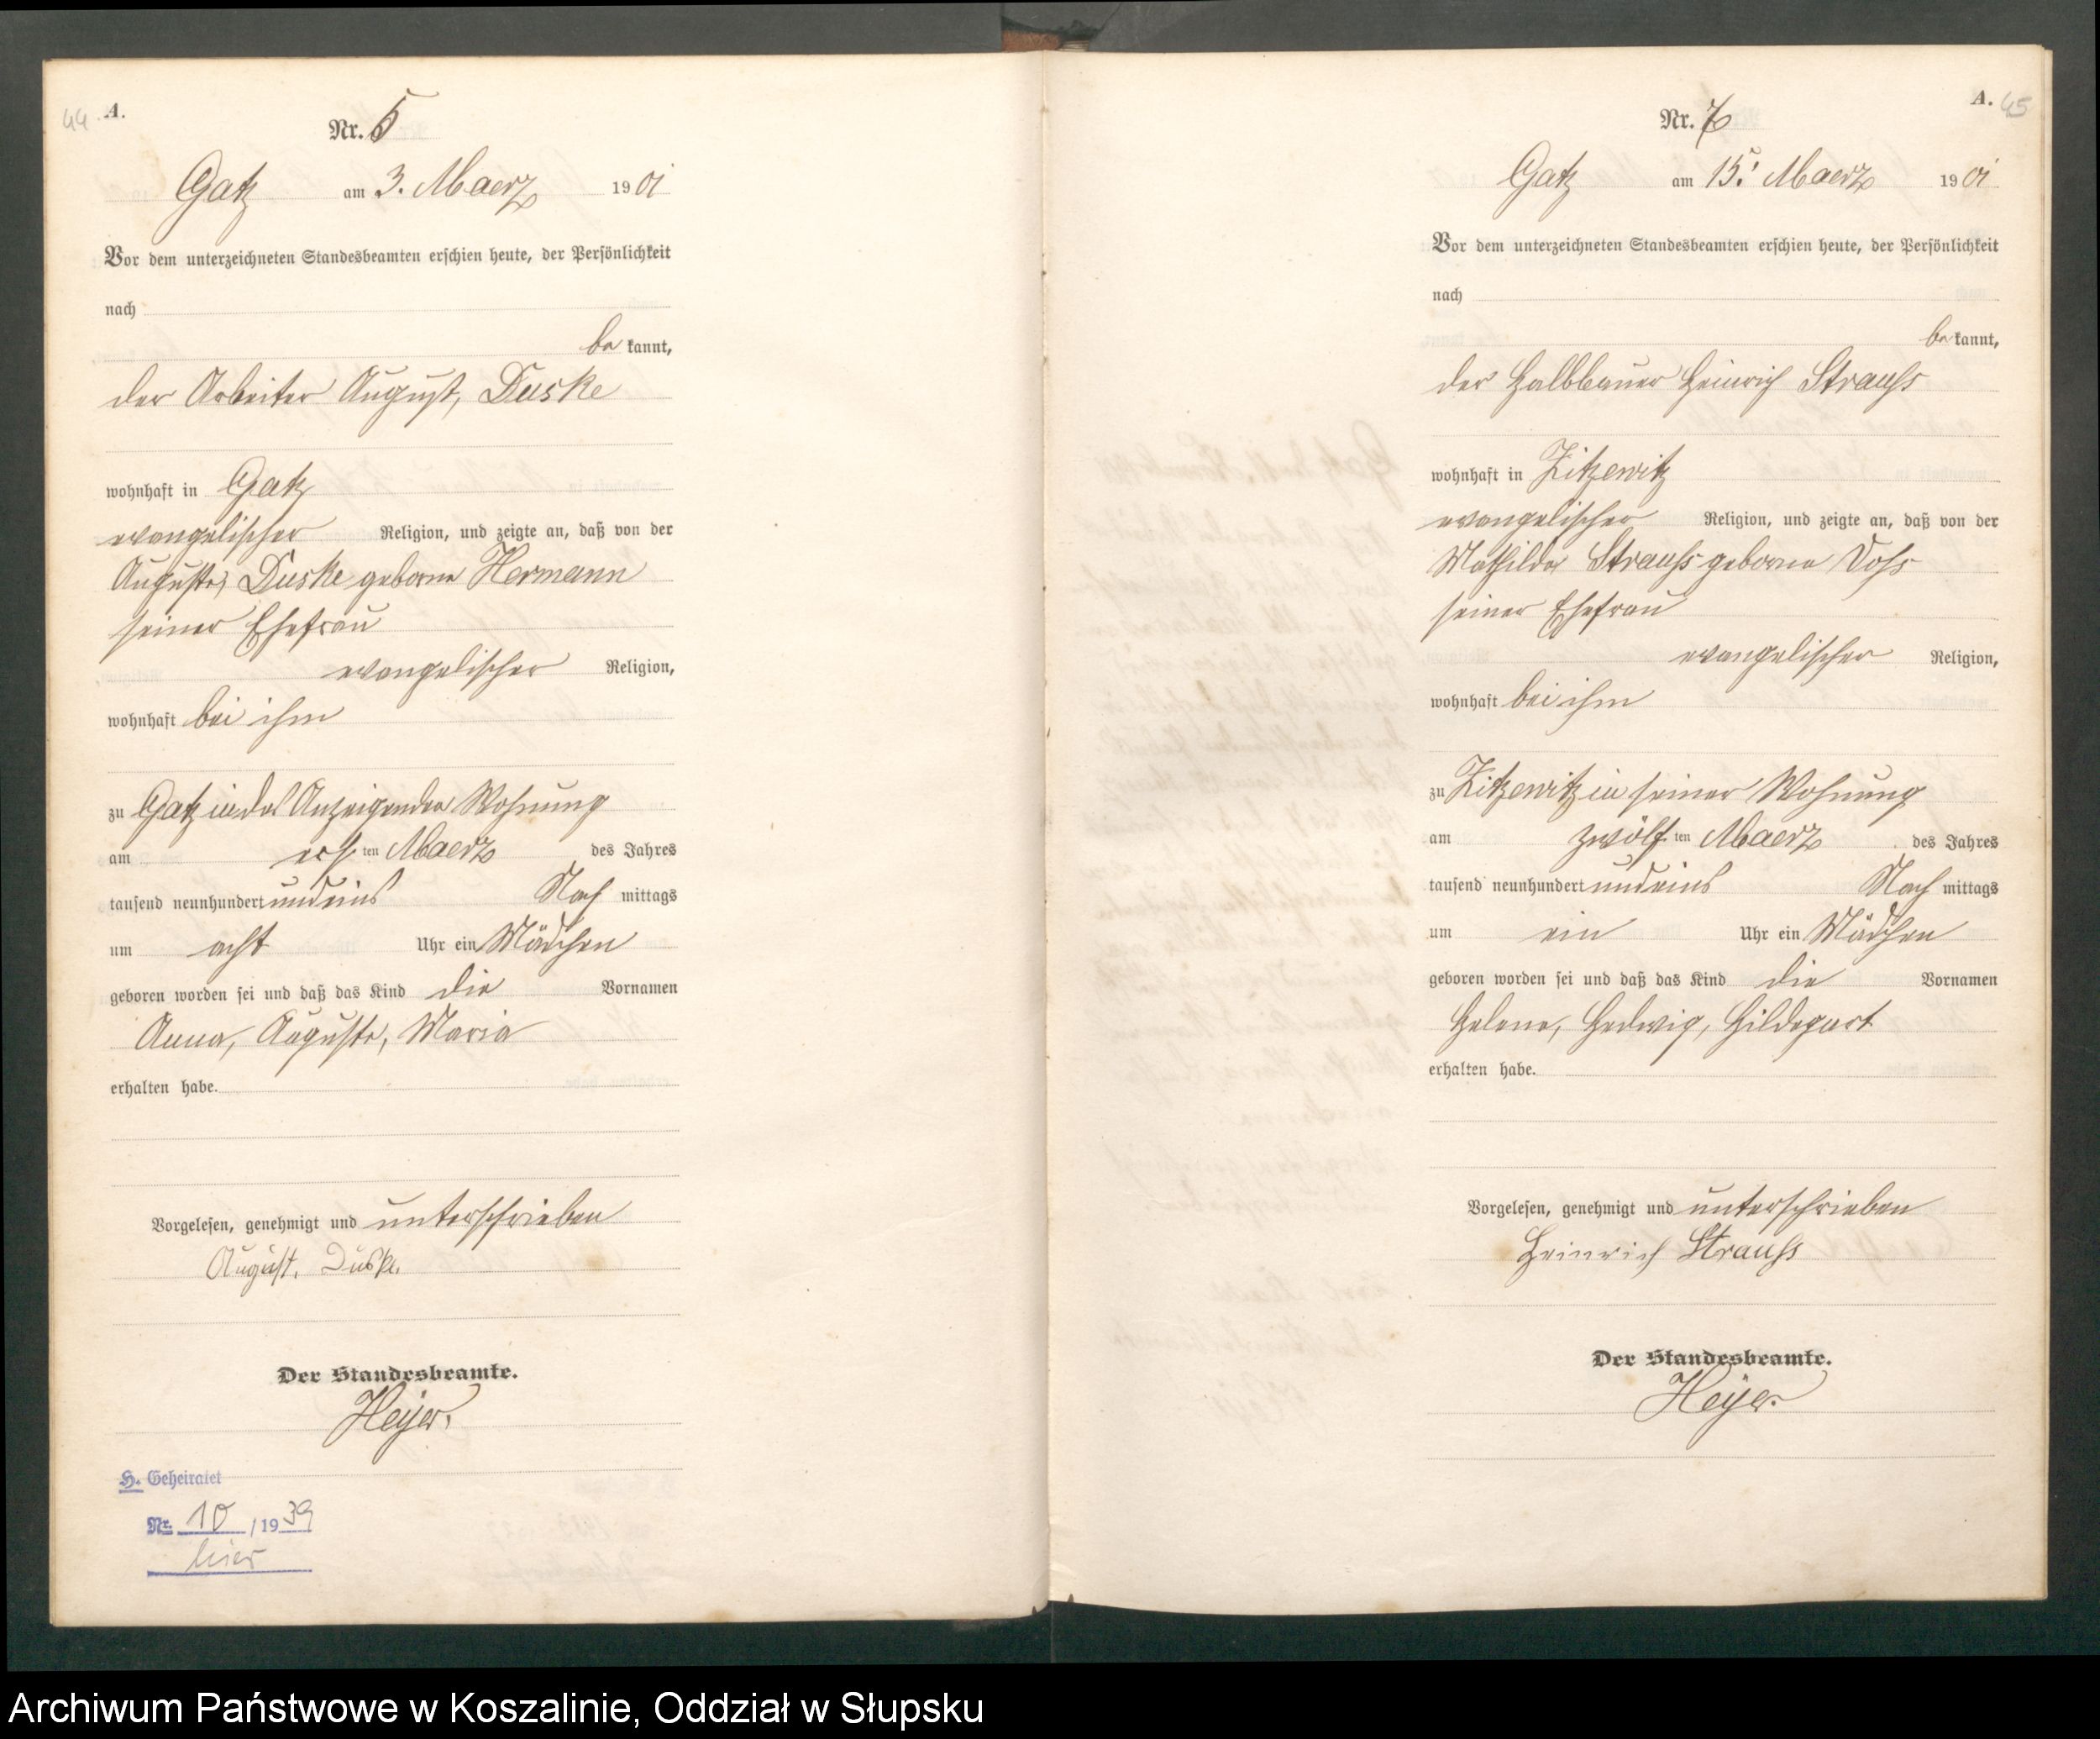 44
A.
Nr. 5
Gatz am 3. Maerz 1901
Vor dem unterzeichneten Standesbeamten erschien heute, der Persönlichkeit
nach
be kannt,
der Arbeiter August, Duske
wohnhaft in Gatz
evangelischer Religion, und zeigte an, daß von der
Auguste, Duske geborne Hermann
seiner Ehefrau
evangelischer Religion,
wohnhaft bei ihm
zu Gatz in des Anzeigenden Wohnung
am ersten Maerz des Jahres
tausend neunhundert und eins Nach mittags
um acht Uhr ein Mädchen
geboren worden sei und daß das Kind die Vornamen
Anna, Auguste, Maria
erhalten habe.
Vorgelesen, genehmigt und unterschrieben
August. Duske.
Der Standesbeamte.
Heyer.
H. Geheiratet
Nr. 10 / 1939
hier
A. 45
Nr. 7
Gatz am 15. Maerz 1901
Vor dem unterzeichneten Standesbeamten erschien heute, der Persönlichkeit
nach
be kannt,
der Halbbauer Heinrich Strauß
wohnhaft in Zitzewitz
evangelischer Religion, und zeigte an, daß von der
Mathilde Strauß geborne Voß
seiner Ehefrau
evangelischer Religion,
wohnhaft bei ihm
zu Zitzewitz in seiner Wohnung
am zwölf ten Maerz des Jahres
tausend neunhundert und eins Nach mittags
um ein Uhr ein Mädchen
geboren worden sei und daß das Kind die Vornamen
Helene, Hedwig, Hildegart
erhalten habe.
Vorgelesen, genehmigt und unterschrieben
Heinrich Strauß
Der Standesbeamte.
Heyer.
Archiwum Państwowe w Koszalinie, Oddział w Słupsku